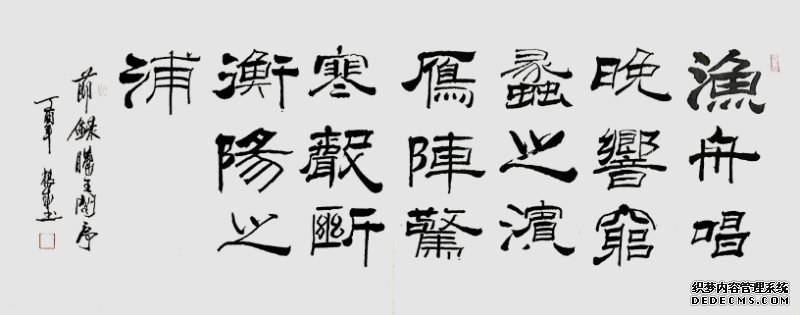 漁舟唱
晚響窮
蠡之濱
鴈陣驚
寒聲斷
衡陽之
浦
節錄滕王閣序
丁酉年
织梦内容管理系统
DEDECMS.COM